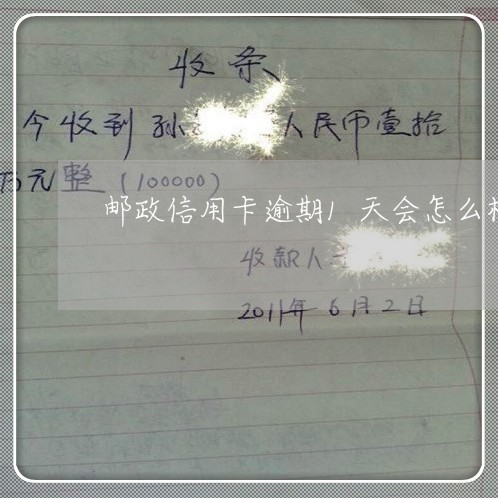 收条
今收到孙 人民币壹拾
万元整（100000）
邮政信用卡逾期1天会怎么
收款人
2011年6月2日